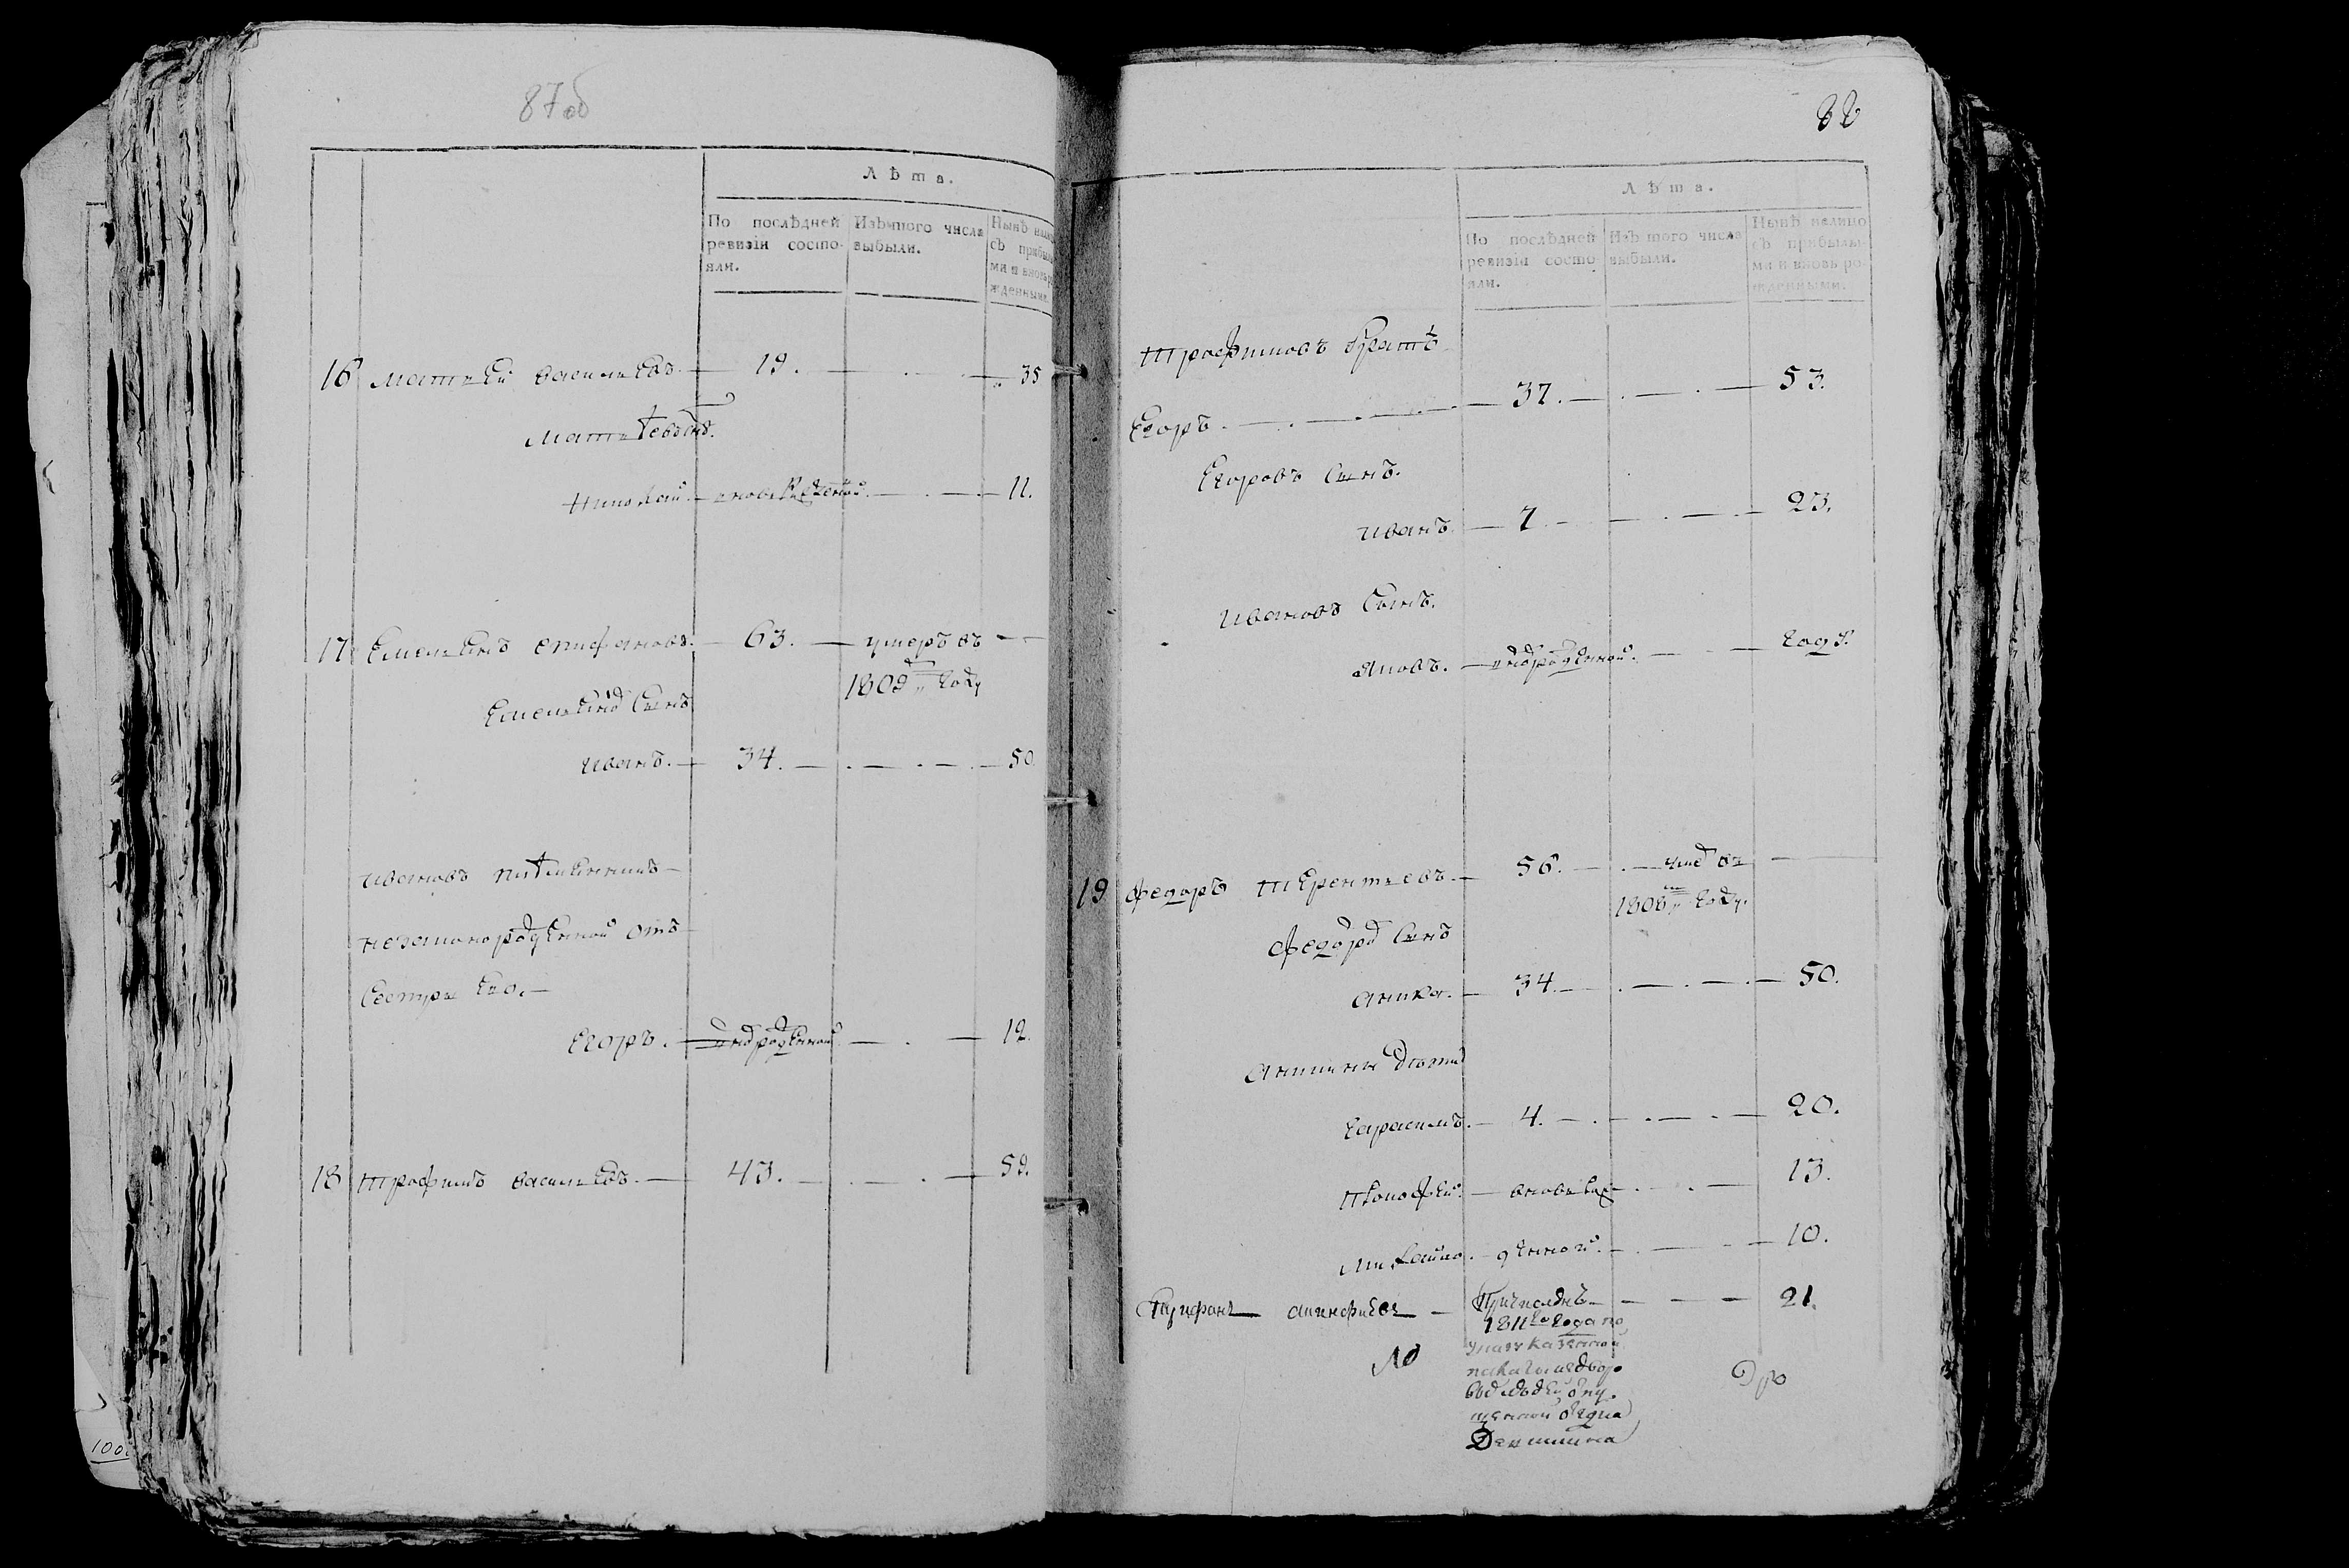 87об
Лѣта.
По послѣдней ревизіи состояли.
Изъ того числа выбыли.
Нынѣ на лицо съ прибылыми и вновь рожденными.
16 Матвей Васильевъ — 19. — 35
Матвеевъ сынъ.
Николай — вновь рожденой — 11.
17 Емельянъ Епифановъ — 63. — умеръ въ
1809м году
Емельяновъ Сынъ
Иванъ — 34. — 50
Ивановъ племянникъ
незаконорожденной отъ
Сестры Его. —
Егоръ. — вновь рожденной — 12.
18 Трофимъ Васильевъ. — 43. — 59.
88
Лѣта.
По послѣдней ревизіи состояли.
Изъ того числа выбыли.
Нынѣ налицо съ прибылыми и вновь рожденными.
Трофимовъ братъ
Егоръ. — 37. — 53.
Егоровъ Сынъ.
Иванъ — 7. — 23.
Ивановъ Сынъ.
Яковъ. — вновь рожденной. — Году.
19 Федоръ Терентьевъ — 56. — умеръ въ
1808м году.
Федоровъ Сынъ
Аника. — 34. — 50.
Аникины дѣти
Герасимъ. — 4. — 20.
— вновь рож — 13.
Михайло. — денной. — 10.
Трифонъ — 21.
1811го года по